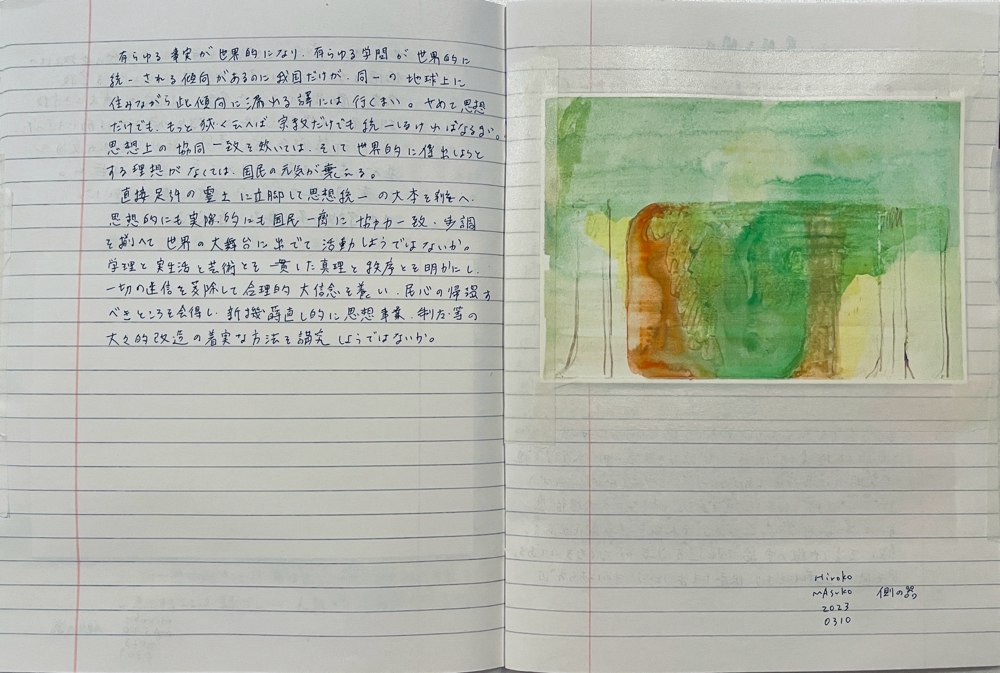 有らゆる事実が世界的になり、有らゆる学問が世界的に
統一される傾向があるのに我国だけが、同一の地球上に
住みながら此傾向に漏れる譯には行くまい。せめて思想
だけでも、もっと狭く云へば宗教だけでも統一しなければなるまい。
思想上の協同一致を欠いては、そして世界的に傑出しようと
する理想がなくては、国民の元気が衰へる。
直接足許の霊土に立脚して思想統一の大本を
思想的にも実際的にも国民一斉に、協力一致、歩調
を揃へて世界の大舞台に出でて活動しようではないか。
学理と実生活と芸術とを一貫した真理と秩序とを明かにし、
一切の迷信を芟除して合理的大信念を養い、民心の帰湿す
べきところを会得し、新機蒔直し的に思想、事業、制度、等の
大々的改造の着実な方法を講究しようではないか。
Hiroko
mAsuko 側の器
2023
0310